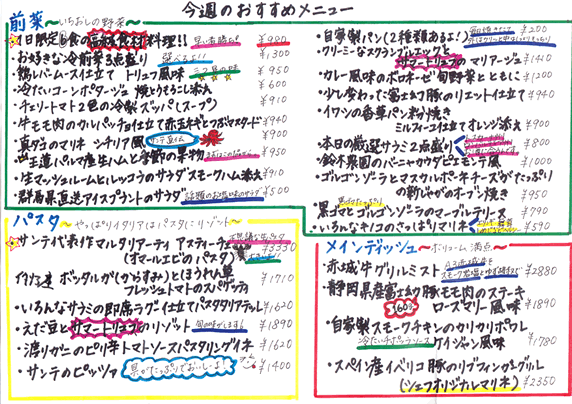 今週のおすすめメニュー
前菜 ~いちおしの野菜~
1日限定 食の高級食材料理!! 早い者勝ち ¥980
・お好きな冷前菜3点盛り 選べるよ!! ¥1300
・鶏レバームース仕立て トリュフ風味 ¥950
・冷たいコーンポタージュ 焼とうもろこし添え ¥600
・チェリートマト2色の冷製ズッパ(スープ) ¥910
・牛モモ肉のカルパッチョ仕立て 赤玉ネギとつぶマスタード ¥940
・真ダコのマリネ シチリア風 ¥900
・王道パルマ産生ハムと季節の果物 ¥950
・生マッシュルームとルッコラのサラダ スモークハム添え ¥910
・群馬県直送アイスプラントのサラダ ¥500
・自家製パン(2種類あるよ!) ¥200
・クリーミーなスクランブルエッグと
サマートリュフのマリアージュ ¥1410
・カレー風味のボロネーゼ 旬野菜とともに ¥1200
・少し変わった富士ノ介豚のリエット仕立て ¥940
・イワシの香草パン粉焼き
ミルフィーユ仕立てオレンジ添え ¥900
・本日の厳選サラミ2点盛り ¥800
・鈴木農園のバーニャカウダ ピエモンテ風 ¥1000
・ゴルゴンゾーラとマスカルポーネチーズがたっぷり
の新じゃがのオーブン焼き ¥950
・黒ゴマとゴルゴンゾーラのマーブルテリーヌ ¥790
・いろんなキノコのさっぱりマリネ ¥590
パスタ ~やっぱりイタリアはパスタにリゾット~
サンテ代表作マルタリアーティ アスティーチェ
(オマールエビのパスタ) ¥3350
ボッタルガ(からすみ)とほうれん草
フレッシュトマトのスパゲッティ ¥1710
・いろんなサラミの即席ラグー仕立て パスタタリアテッレ ¥1620
・えだ豆とサマートリュフのリゾット ¥1890
・渡りガニのピリ辛トマトソースパスタリングイネ ¥1620
・サンテのピッツァ 具がたっぷりでおいしーよ! ¥1400
メインディッシュ ~ボリューム満点~
・赤城牛グリルミスト ¥2880
・静岡県産富士ノ介豚モモ肉のステーキ
ローズマリー風味 ¥1890
・自家製スモークチキンのカリカリポワレ
ケイジャン風味 ¥1780
・スペイン産イベリコ豚のリブフィンガーグリル
(シェフオリジナルマリネ) ¥2350